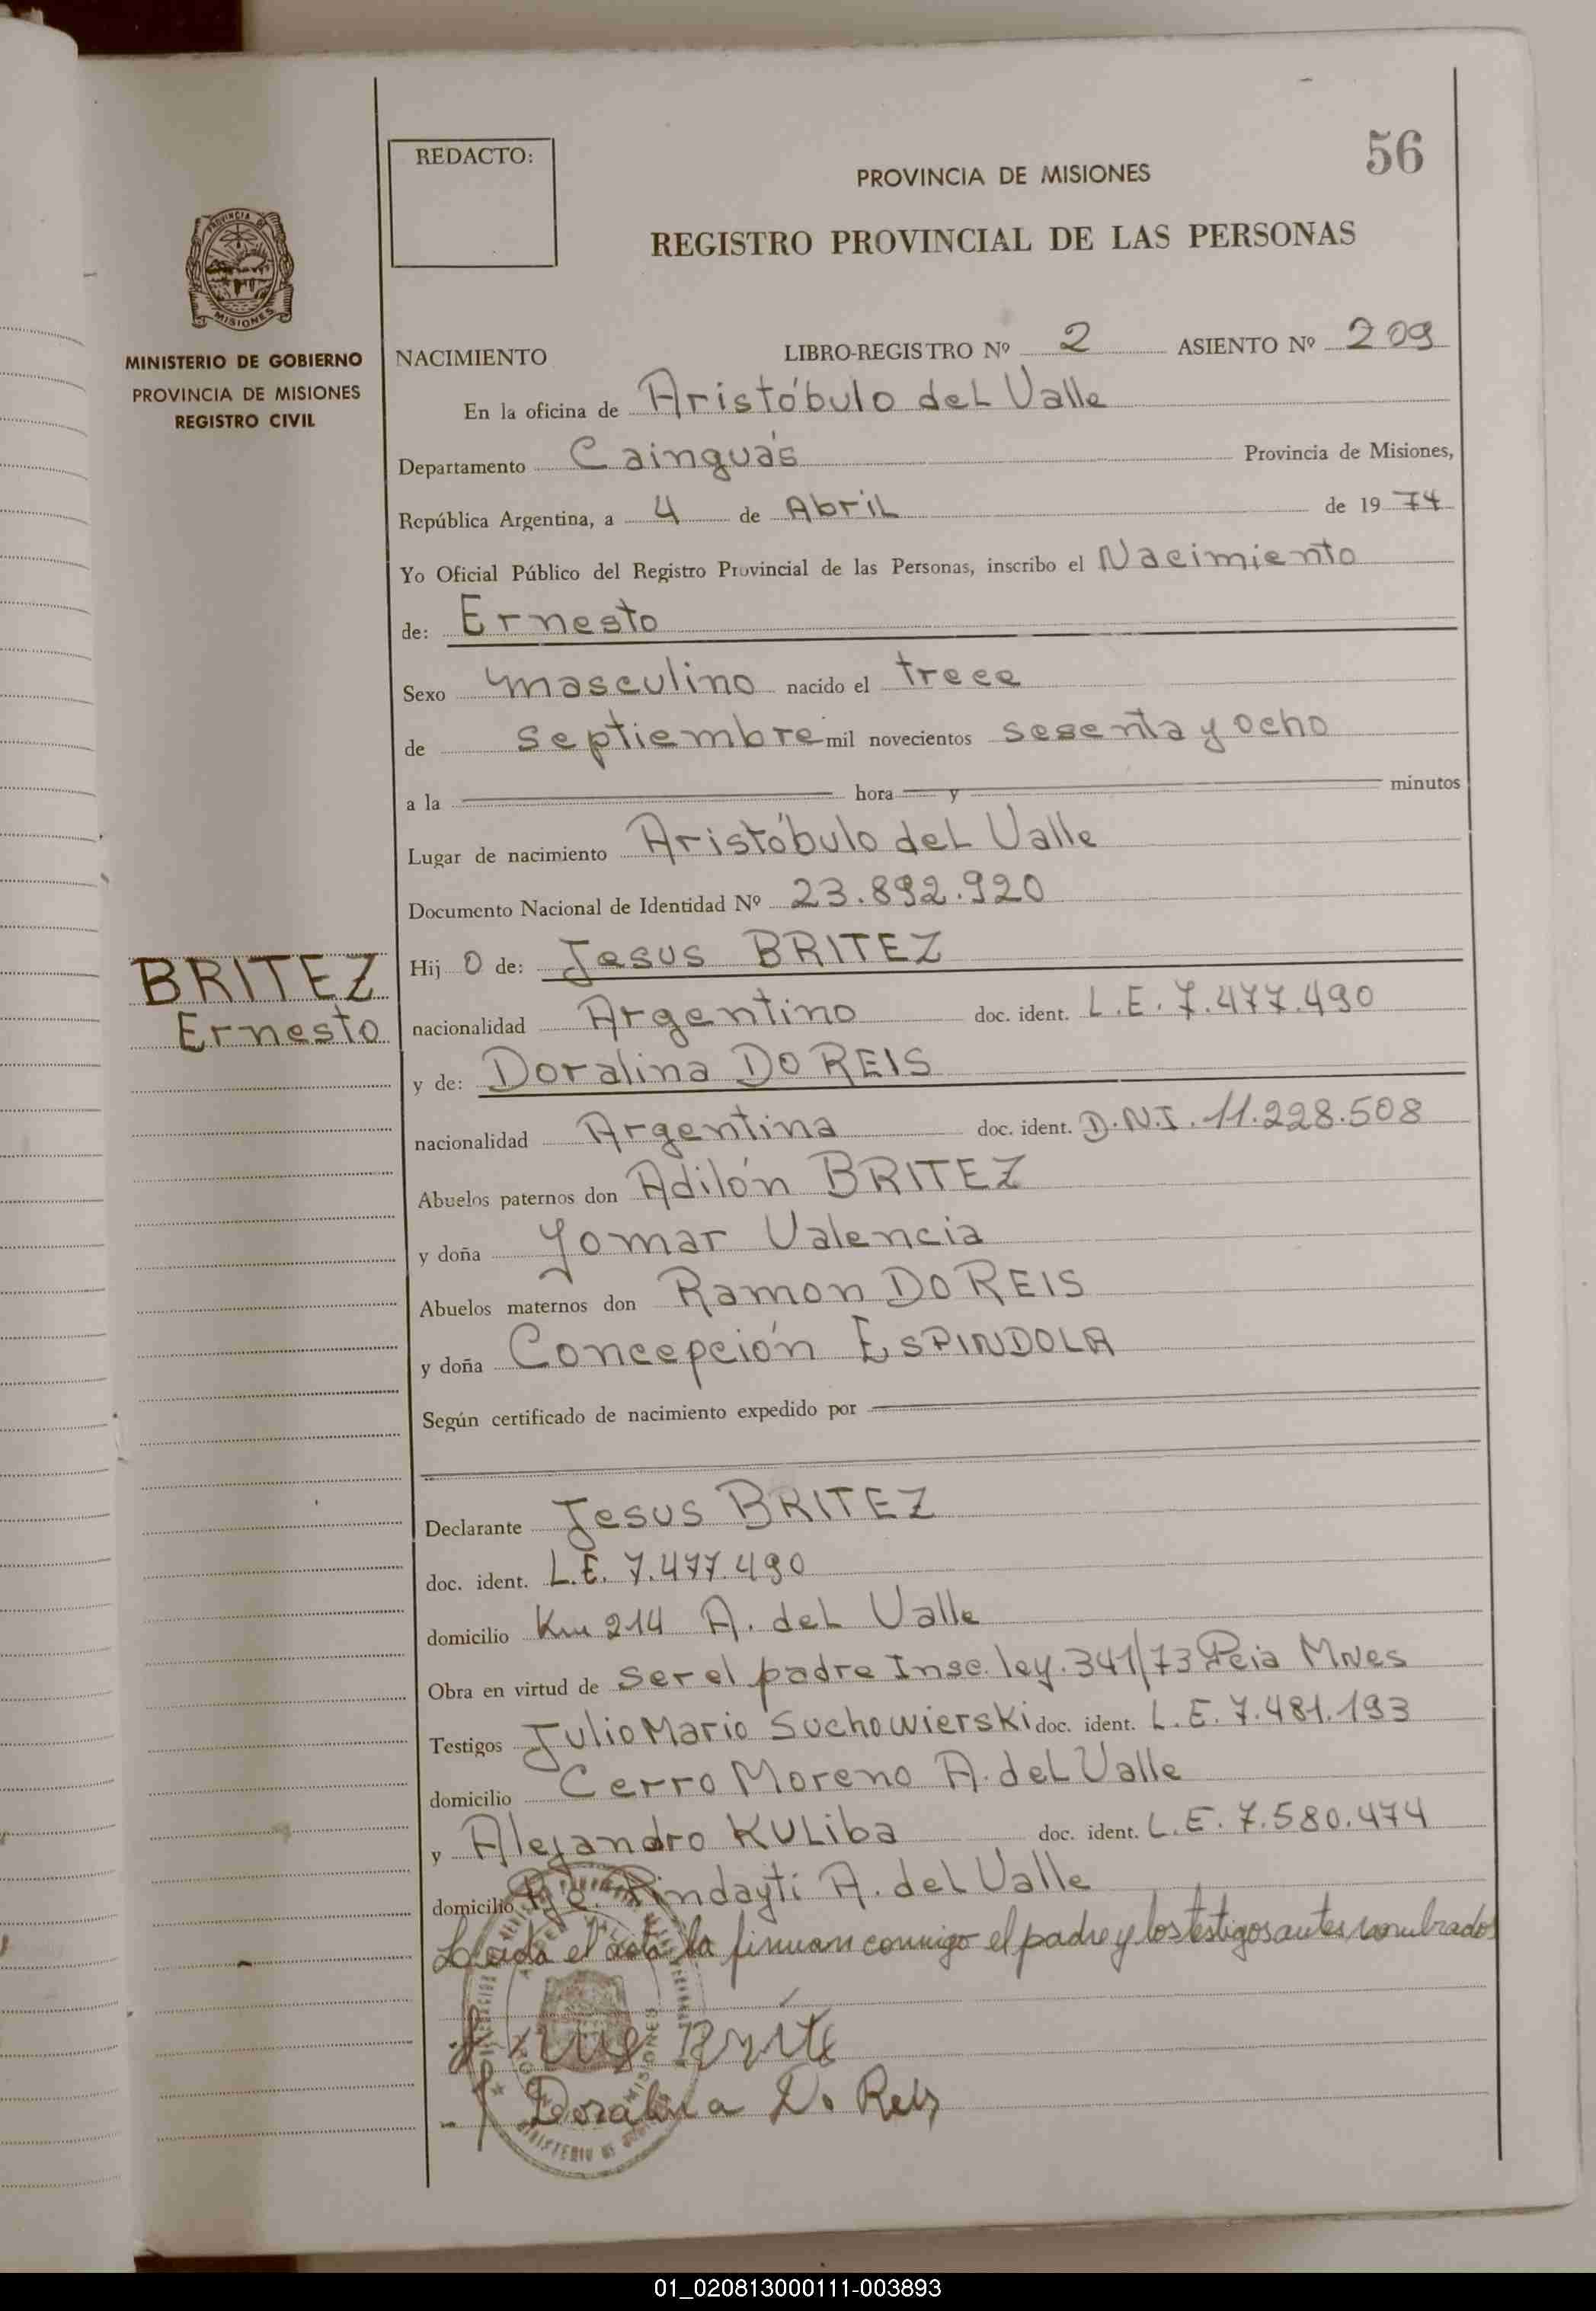 REDACTO:
56
PROVINCIA DE MISIONES
REGISTRO PROVINCIAL DE LAS PERSONAS
PROVINCIA DE
MISIONES
MINISTERIO DE GOBIERNO
PROVINCIA DE MISIONES
REGISTRO CIVIL
NACIMIENTO LIBRO-REGISTRO Nº 2 ASIENTO Nº 209
En la oficina de Aristóbulo del Valle
Departamento Cainguás Provincia de Misiones,
República Argentina, a 4 de Abril de 1974
Yo Oficial Público del Registro Provincial de las Personas, inscribo el Nacimiento
de: Ernesto
Sexo masculino nacido el trece
de septiembre mil novecientos sesenta y ocho
a la hora y minutos
Lugar de nacimiento Aristóbulo del Valle
Documento Nacional de Identidad Nº 23.892.920
BRITEZ
Ernesto
Hijo de: Jesus BRITEZ
nacionalidad Argentino doc. ident. L.E. 7.477.490
y de: Doralina DO REIS
nacionalidad Argentina doc. ident. D.N.I. 11.228.508
Abuelos paternos don Adilón BRITEZ
y doña Yomar Valencia
Abuelos maternos don Ramon DO REIS
y doña Concepción ESPINDOLA
Según certificado de nacimiento expedido por
Declarante Jesus BRITEZ
doc. ident. L.E. 7.477.490
domicilio Km 214 A. del Valle
Obra en virtud de ser el padre Insc. ley. 341/73 Pcia Mnes
Testigos Julio Mario Suchowierski doc. ident. L.E. 7.481.193
domicilio Cerro Moreno A. del Valle
y Alejandro KULiba doc. ident. L.E. 7.580.474
domicilio Pje. Pindayti A. del Valle
Leida el acta la firman conmigo el padre y los testigos antes nombrados
Doralina Do Reis
01_020813000111-003893